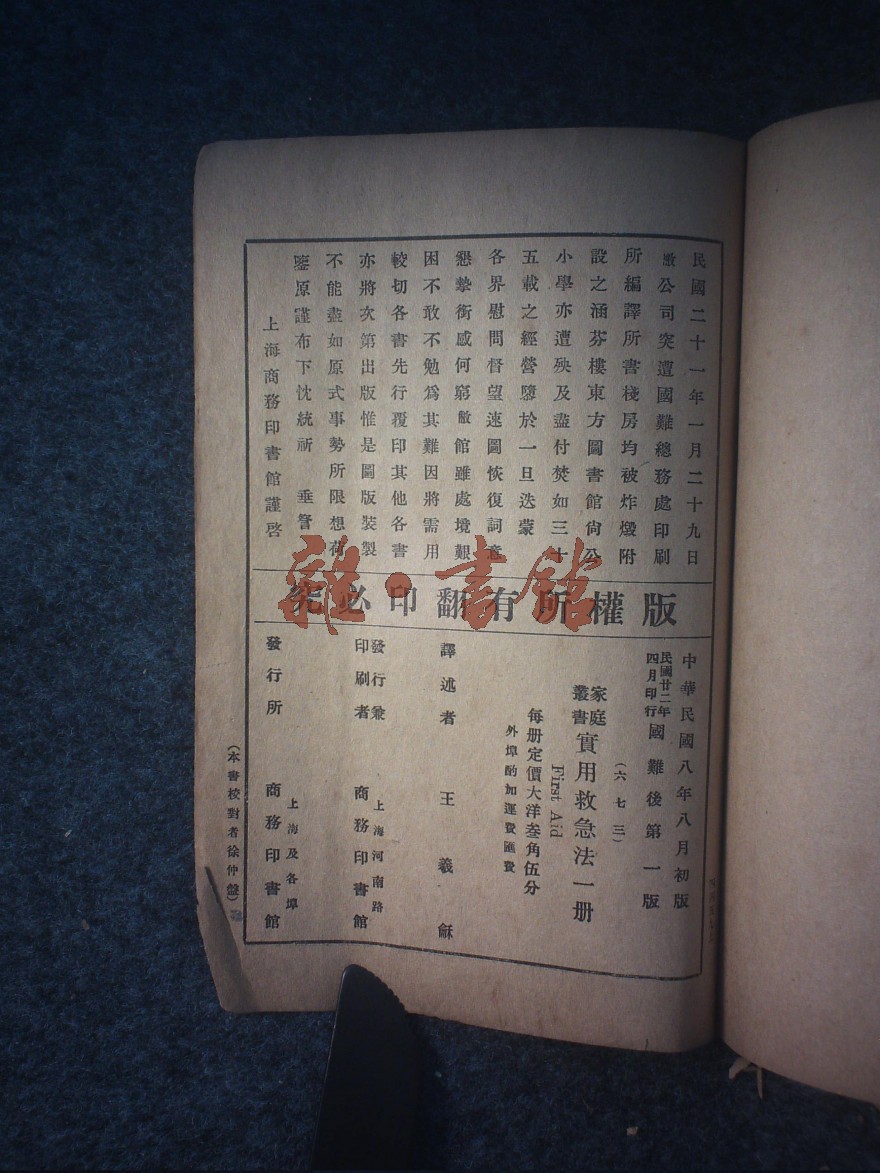 民國二十一年一月二十九日
敝公司突遭國難總務處印刷
所編譯所書棧房均被炸燬附
設之涵芬樓東方圖書館尚公
小學亦遭殃及盡付焚如三十
五載之經營隳於一旦迭蒙
各界慰問督望速圖恢復詞意
懇摯銜感何窮敝館雖處境艱
困不敢不勉爲其難因將需用
較切各書先行覆印其他各書
亦將次第出版惟是圖版裝製
不能盡如原式事勢所限想荷
鑒原謹布下忱統祈 垂詧
上海商務印書館謹啓
版權所有翻印必究
中華民國八年八月初版
民國廿二年四月印行 國難後第一版
(六七三)
家庭叢書 實用救急法一册
First Aid
每册定價大洋叁角伍分
外埠酌加運費匯費
譯述者 王羲龢
發行兼印刷者 上海河南路 商務印書館
發行所 上海及各埠 商務印書館
(本書校對者徐仲盤)
雜·書館